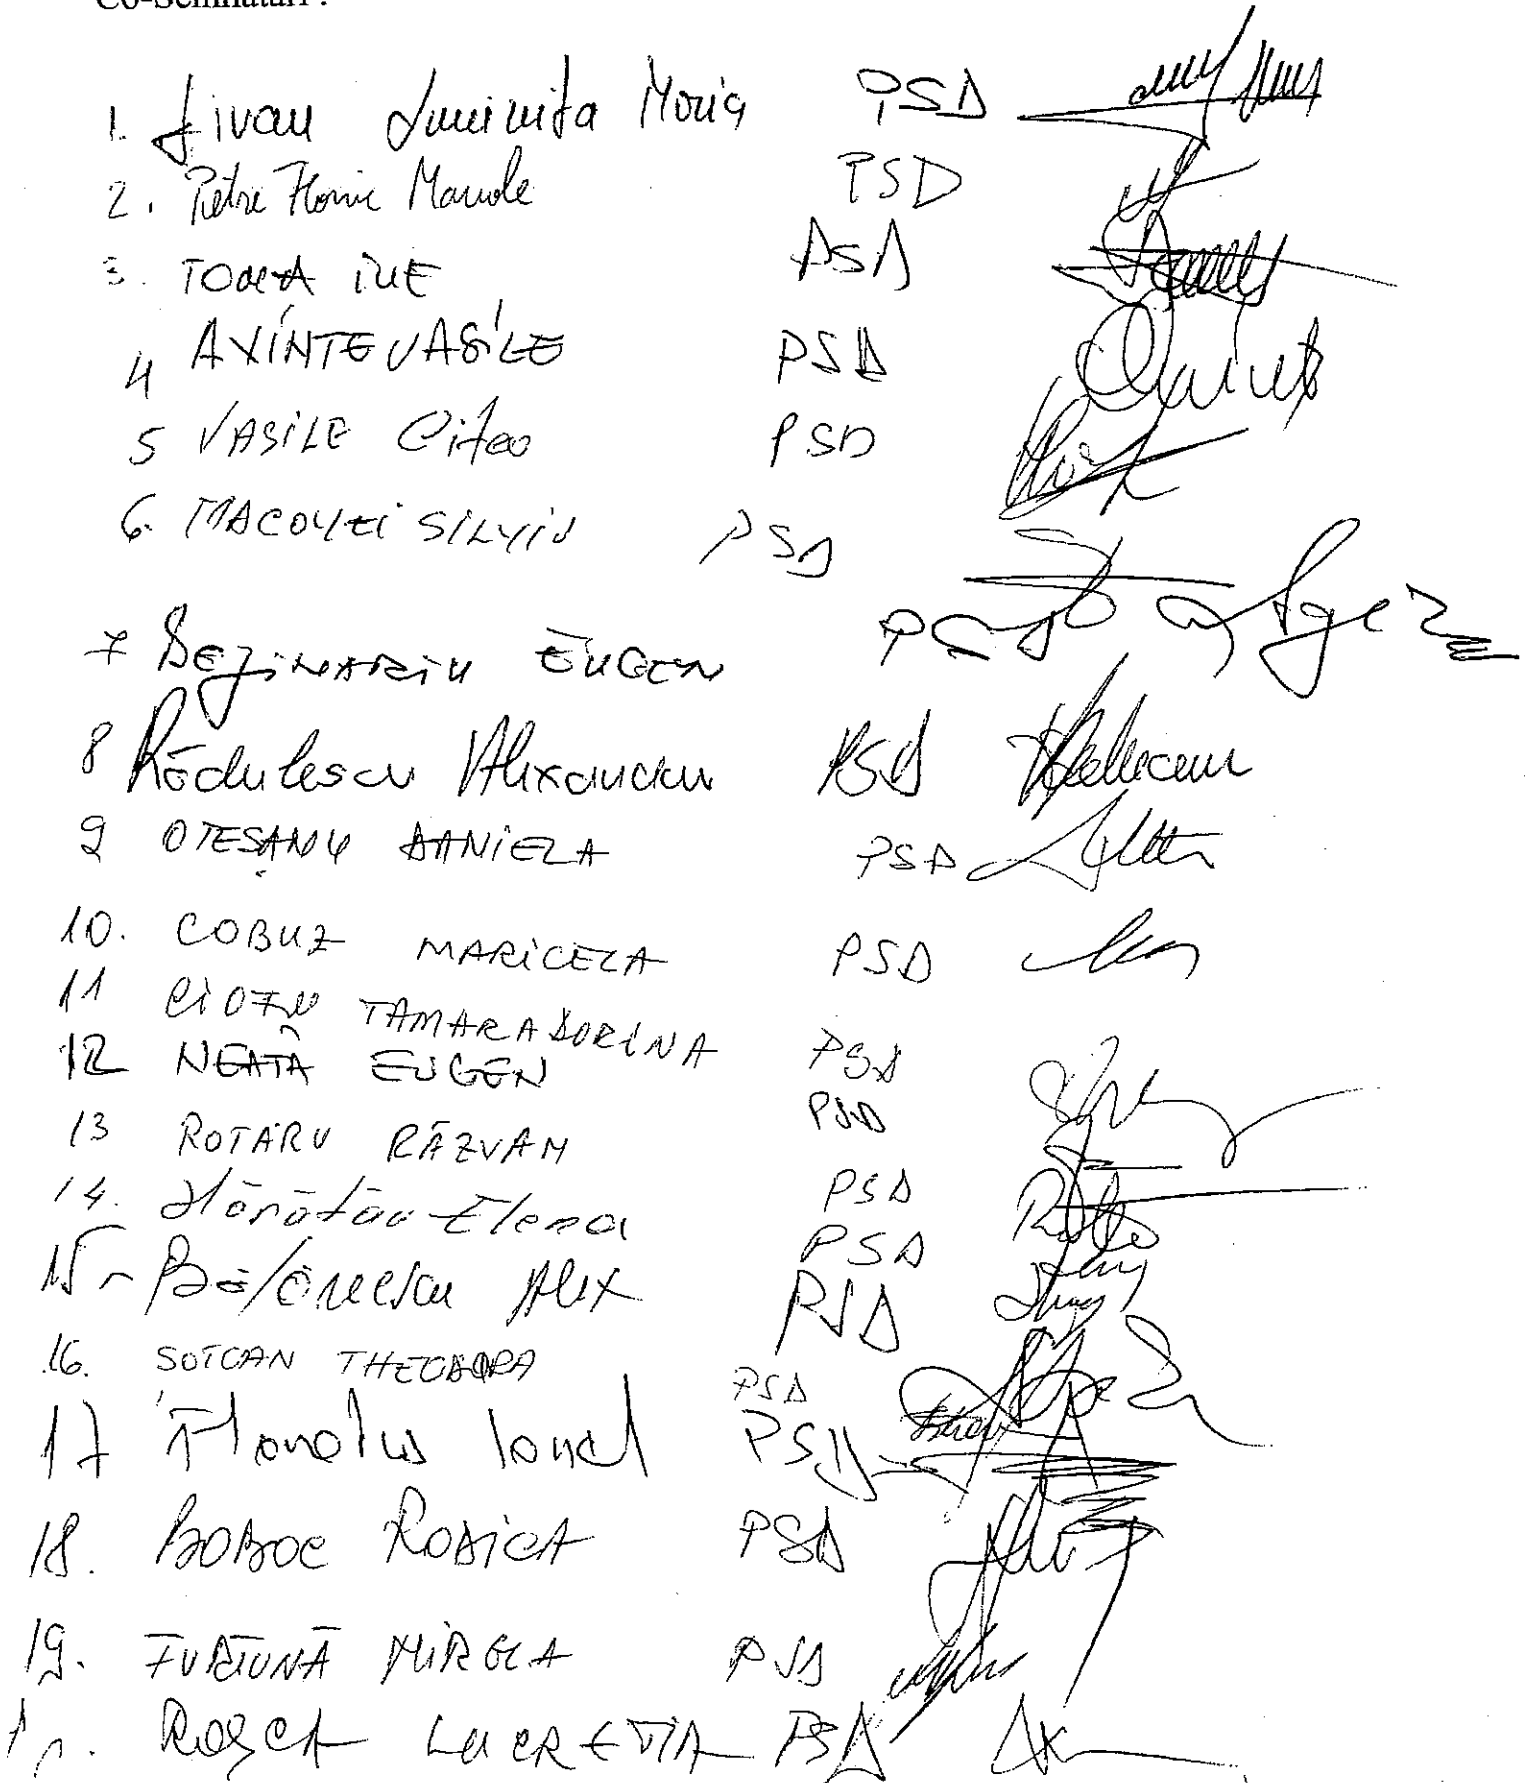 Co-Semnatari :
1. Jivan Luminița Maria PSD
2. Petre Florin Manole PSD
3. TOMA ILIE PSD
4 AXINTE VASILE PSD
5 VASILE Cîtea PSD
6. MACOVEI SILVIU PSD
7 Bejinariu EUGEN PSD
8 Rădulescu Alexandru PSD
9 OTEȘANU DANIELA PSD
10. COBUZ MARICELA PSD
11 CIOFU TAMARA DORINA PSD
12 NEAȚĂ EUGEN PSD
13 ROTARU RĂZVAN PSD
14. Hărătău Elena PSD
15 - Bălănescu Alex PSD
16. ȘOTCAN THEODORA PSD
17 Floroiu Ionel PSD
18. BOBOC RODICA PSD
19. FURTUNĂ MIRELA PSD
ROȘCA LUCREȚIA PSD